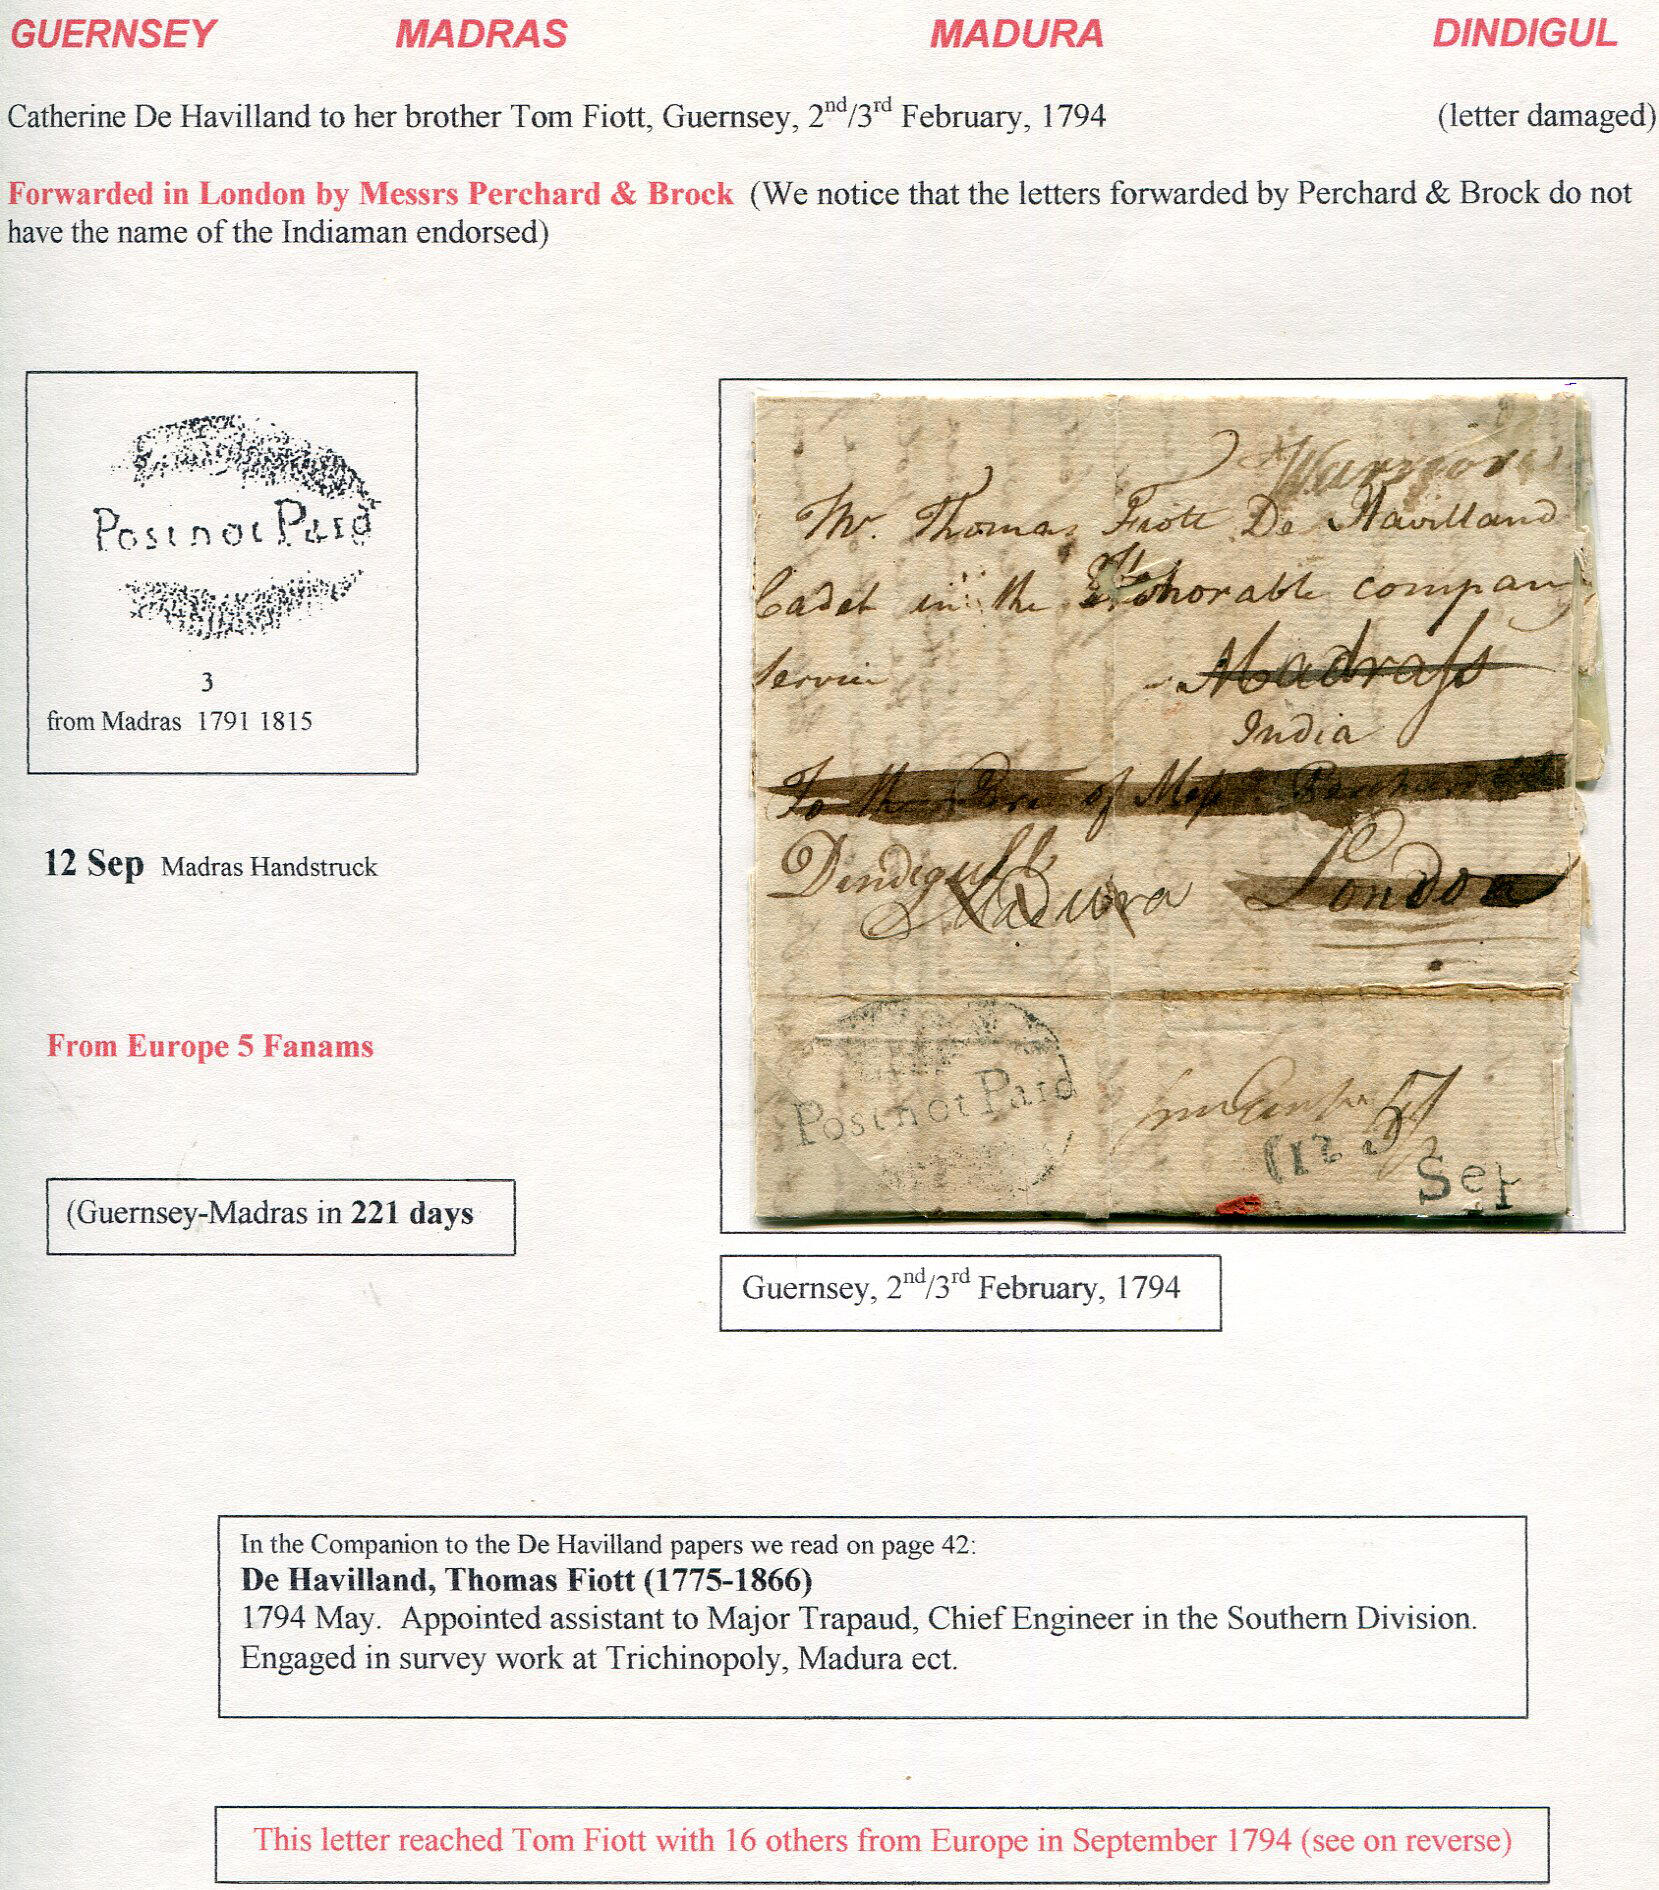 GUERNSEY MADRAS MADURA DINDIGUL
Catherine De Havilland to her brother Tom Fiott, Guernsey, 2nd/3rd February, 1794 (letter damaged)
Forwarded in London by Messrs Perchard & Brock (We notice that the letters forwarded by Perchard & Brock do not
have the name of the Indiaman endorsed)
Post not Paid
3
from Madras 1791 1815
12 Sep Madras Handstruck
From Europe 5 Fanams
(Guernsey-Madras in 221 days
Mr. Thomas Fiott De Havilland
Cadet in the Honorable company
Service Madrass
India
To the Care of Mess Perchard
Dindigull
Madura London
Post not Paid
12
Sep
Guernsey, 2nd/3rd February, 1794
In the Companion to the De Havilland papers we read on page 42:
De Havilland, Thomas Fiott (1775-1866)
1794 May. Appointed assistant to Major Trapaud, Chief Engineer in the Southern Division.
Engaged in survey work at Trichinopoly, Madura ect.
This letter reached Tom Fiott with 16 others from Europe in September 1794 (see on reverse)